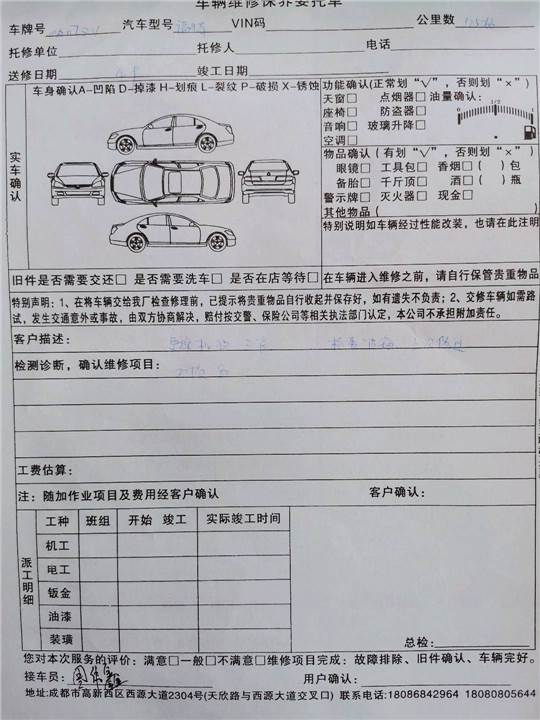 车辆维修保养委托单
车牌号 汽车型号 VIN码 公里数
托修单位 托修人 电话
送修日期 竣工日期
车身确认A-凹陷 D-掉漆 H-划痕 L-裂纹 P-破损 X-锈蚀
功能确认(正常划“√”，否则划“×”)
天窗□ 点烟器□ 油量确认：
座椅□ 防盗器□
音响□ 玻璃升降□
空调□
实车确认
物品确认（有划“√”，否则划“×”）
眼镜□ 工具包□ 香烟□( )包
备胎□ 千斤顶□ 酒□( )瓶
警示牌□ 灭火器□ 现金□
其他物品( )
特别说明如车辆经过性能改装，也请在此注明
旧件是否需要交还□ 是否需要洗车□ 是否在店等待□ 在车辆进入维修之前，请自行保管贵重物品
特别声明：1、在将车辆交给我厂检查修理前，已提示将贵重物品自行收起并保存好，如有遗失不负责；2、交修车辆如需路
试，发生交通意外或事故，由双方协商解决，赔付按交警、保险公司等相关执法部门认定，本公司不承担附加责任。
客户描述：
检测诊断，确认维修项目：
工费估算：
注：随加作业项目及费用经客户确认 客户确认：
派工明细
工种 班组 开始 竣工 实际竣工时间
机工
电工
钣金
油漆
装璜
总检：
您对本次服务的评价：满意□一般□不满意□维修项目完成：故障排除、旧件确认、车辆完好。
接车员： 用户确认：
地址:成都市高新西区西源大道2304号(天欣路与西源大道交叉口) 联系电话:18086842964 18080805644